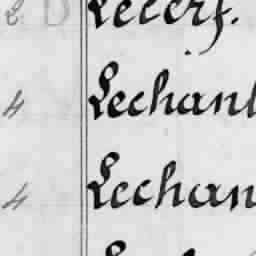 2 D Lecerf.
4 Lechant
4 Lechan